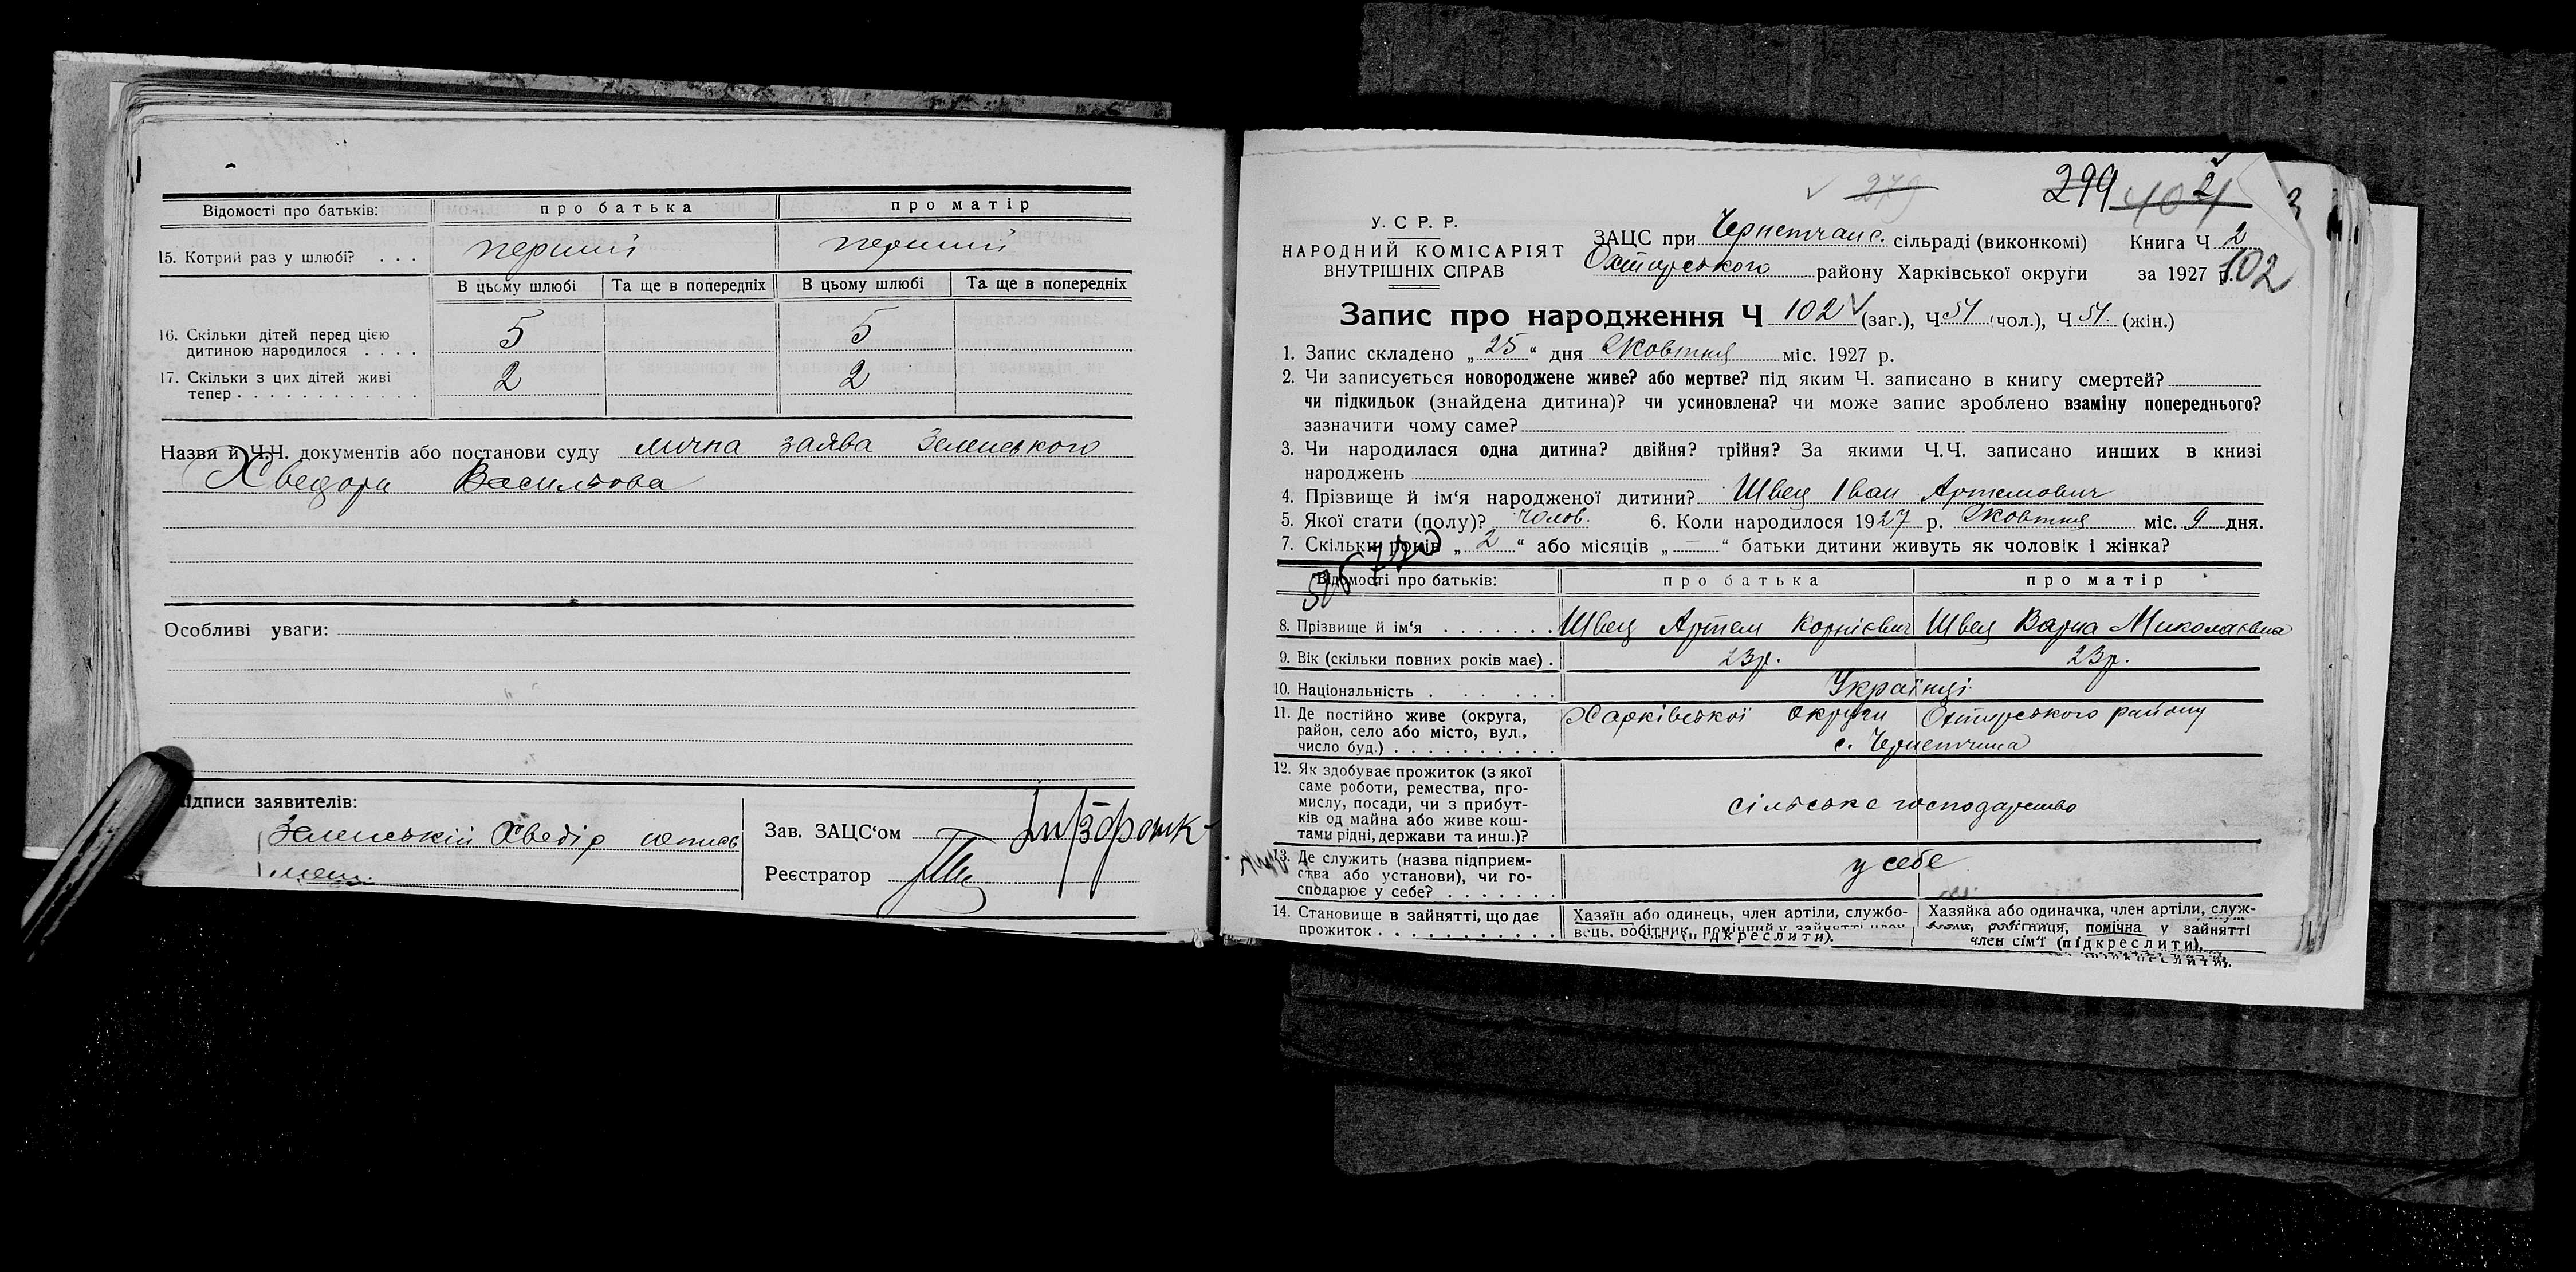 Відомості про батьків: про батька про матір
15. Котрий раз у шлюбі? . . . перший перший
В цьому шлюбі Та ще в попередніх В цьому шлюбі Та ще в попередніх
16. Скільки дітей перед цією
дитиною народилося . . . . 5 5
17. Скільки з цих дітей живі
тепер . . . . . . . . . . . . . 2 2
Назви й Ч.Ч. документів або постанови суду лична заява Зеленського
Хведора Васильова
Особливі уваги:
ідписи заявителів:
Зеленський Хведір
Зав. ЗАЦС‘ом
Реєстратор
279
299 404 2
У. С. Р. Р.
НАРОДНИЙ КОМІСАРІЯТ
ВНУТРІШНІХ СПРАВ
ЗАЦС при Чернетчанс. сільраді (виконкомі) Книга Ч 2
Охтирського району Харківської округи за 1927 р. 102
Запис про народження Ч 102 (заг.), Ч 51 (чол.), Ч 51 (жін.)
1. Запис складено „ 25 “ дня Жовтня міс. 1927 р.
2. Чи записується новороджене живе? або мертве? під яким Ч. записано в книгу смертей?
чи підкидьок (знайдена дитина)? чи усиновлена? чи може запис зроблено взаміну попереднього?
зазначити чому саме?
3. Чи народилася одна дитина? двійня? трійня? За якими Ч.Ч. записано инших в книзі
народжень
4. Прізвище й ім‘я народженої дитини? Швец Іван Артемович
5. Якої стати (полу)? чолов. 6. Коли народилося 1927 р. Жовтня міс. 9 дня.
7. Скільки років „ 2 “ або місяців „ — “ батьки дитини живуть як чоловік і жінка?
Відомості про батьків: про батька про матір
8. Прізвище й ім‘я . . . . . . . Швец Артем Корнієвич Швец Варка Миколаєвна
9. Вік (скільки повних років має) . 23р. 23р.
10. Національність . . . . . . Українці
11. Де постійно живе (округа,
район, село або місто, вул.,
число буд.) . . . . . . . . . .
Харківської округи Охтирського району
с. Чернетчина
12. Як здобуває прожиток (з якої
саме роботи, ремества, про-
мислу, посади, чи з прибут-
ків од майна або живе кош-
тами рідні, держави та инш.)?
сільське господарство
13. Де служить (назва підприєм-
ства або установи), чи го-
сподарює у себе? . . . . . . .
у себе
14. Становище в зайнятті, що дає
прожиток . . . . . . . . . . .
Хазяїн або одинець, член артіли, службо-
вець, робітник, помічний у зайнятті член
(підкреслити).
Хазяйка або одиначка, член артіли, служ-
робітниця, помічна у зайнятті
член сім‘ї (підкреслити).